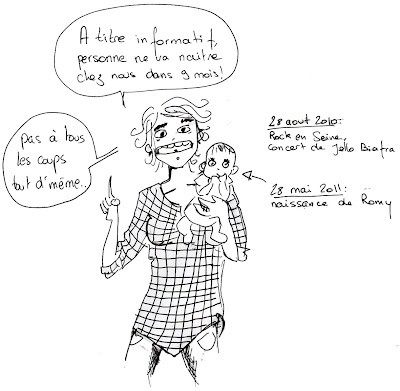 A titre informatif,
personne ne va naître
chez nous dans 9 mois!
pas à tous
les coups
tout d'même..
28 aout 2010:
Rock en Seine,
concert de Jello Biafra
28 mai 2011:
naissance de Romy